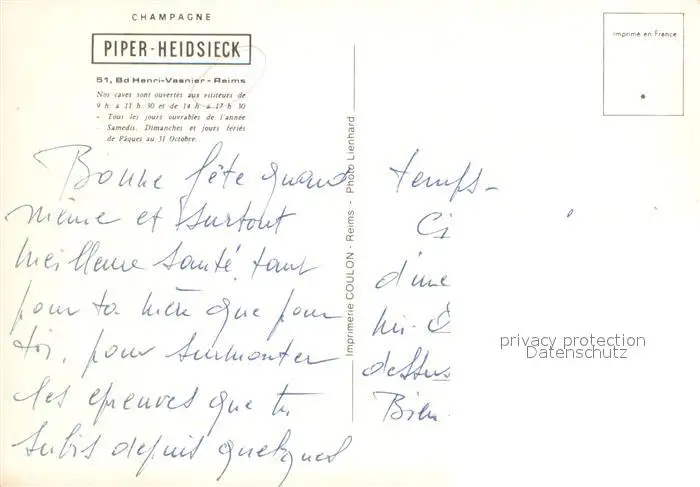 CHAMPAGNE
PIPER-HEIDSIECK
51, Bd Henri-Vasnier - Reims
Nos caves sont ouvertes aux visiteurs de
9 h à 11 h 30 et de 14 h à 17 h 30
- Tous les jours ouvrables de l'année
- Samedis, Dimanches et jours fériés
de Pâques au 31 Octobre.
Imprimé en France
Imprimerie COULON - Reims - Photo Lienhard
Bonne fête quand
même et surtout
meilleure santé, tant
pour ta mère que pour
toi, pour surmonter
les épreuves que tu
subis depuis quelques
temps -
Ci
d'une
dessus
Bien
privacy protection
Datenschutz